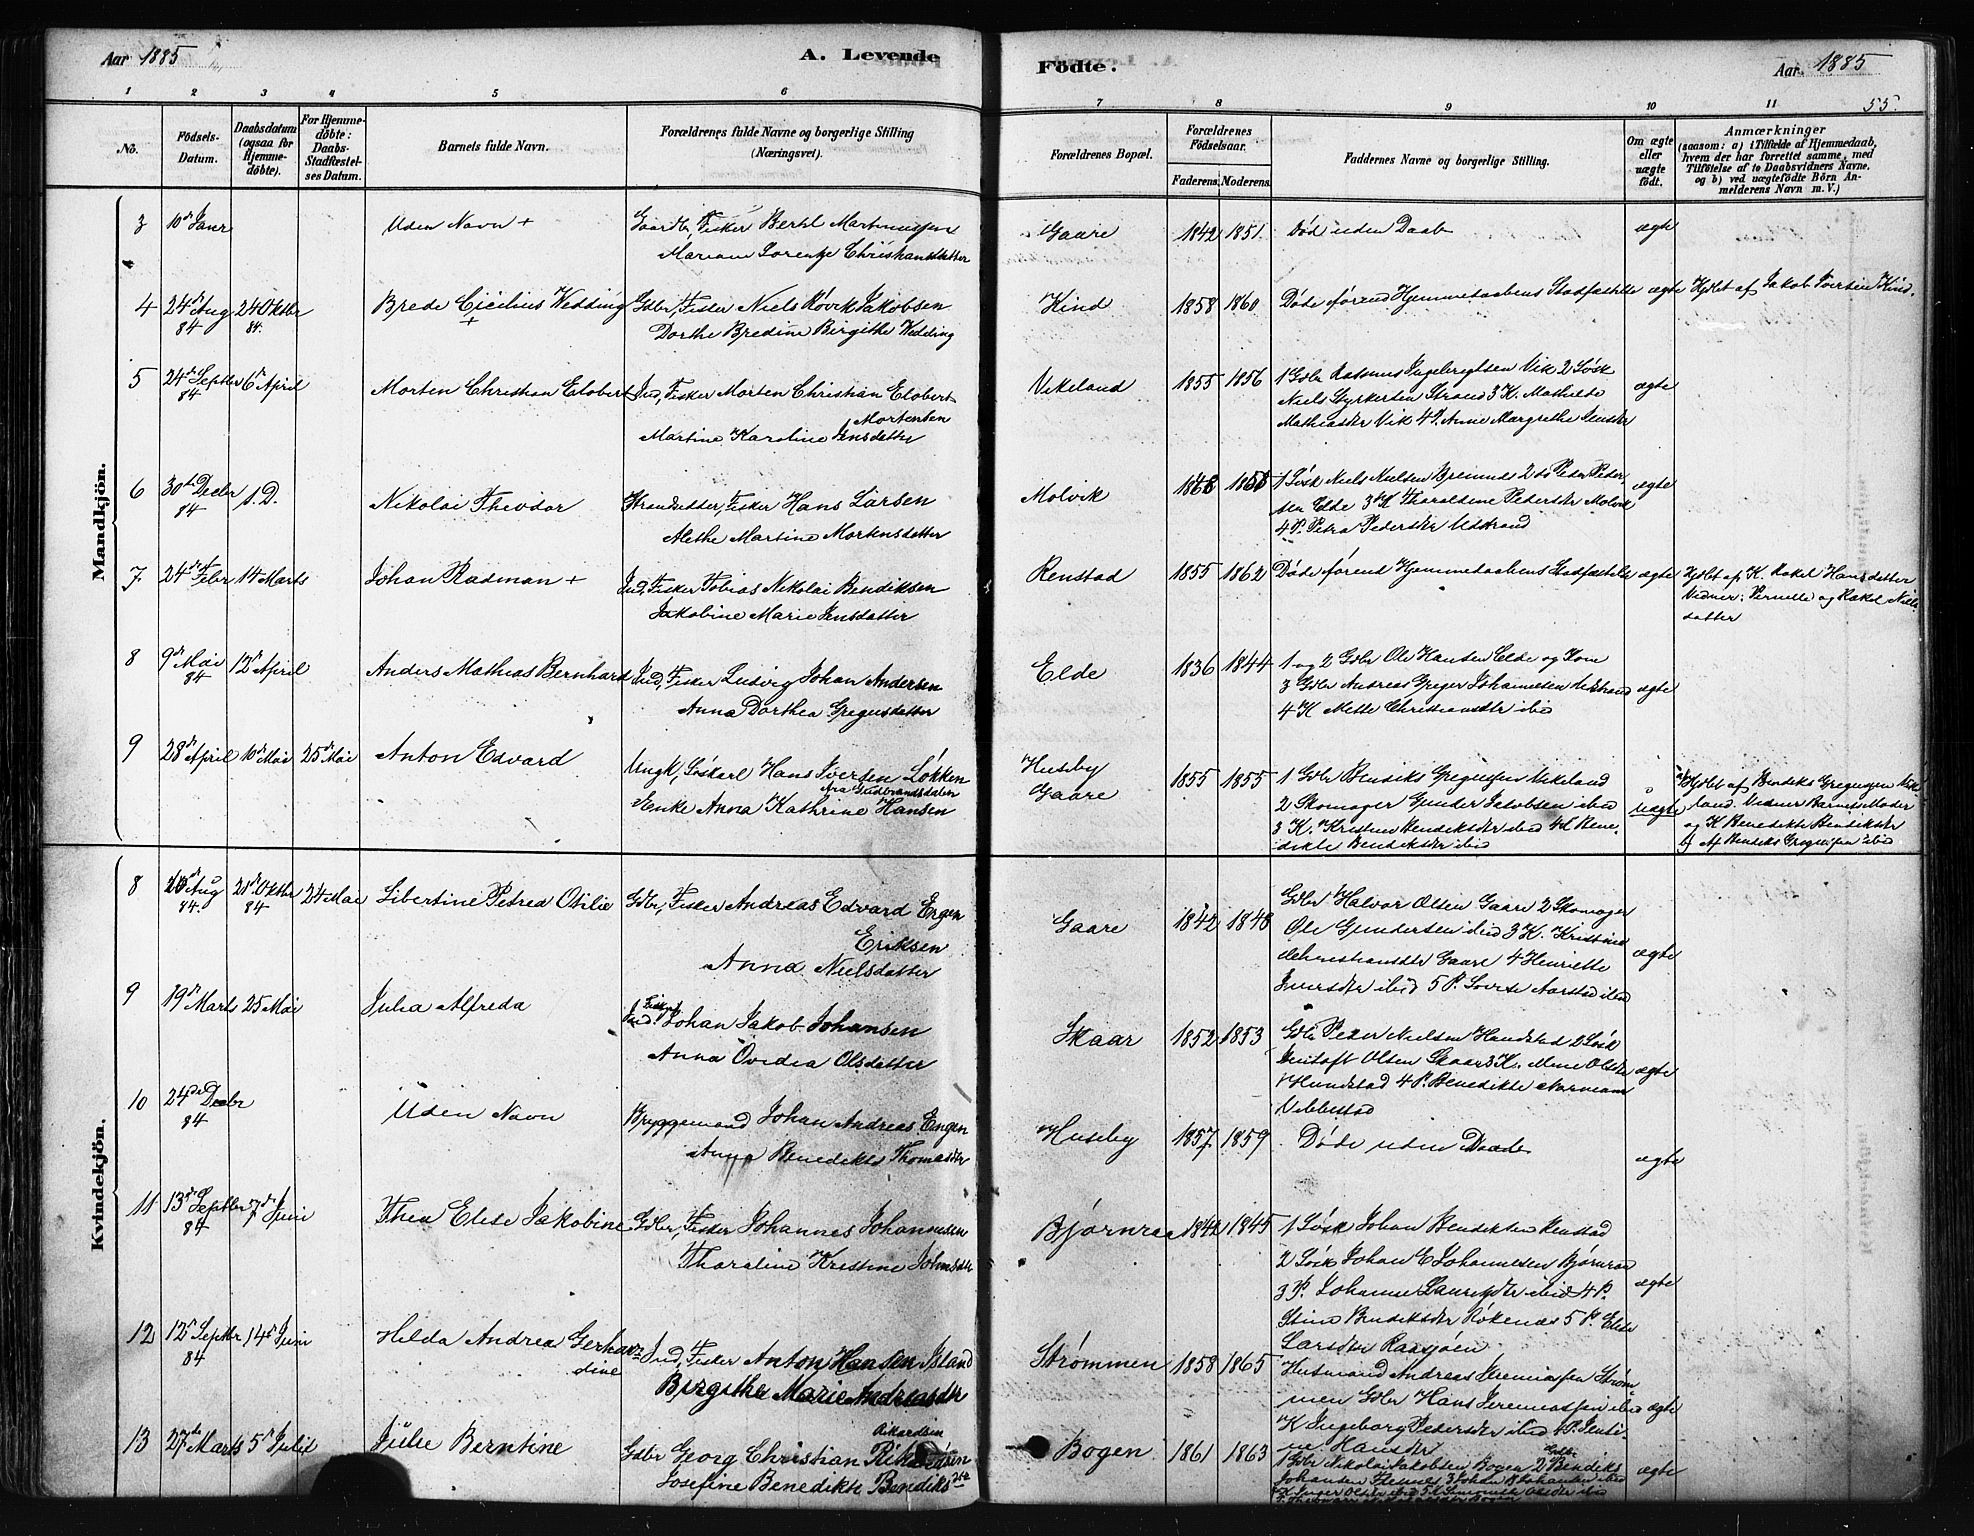 Aar 1885
A. Levende
Födte.
Aar 1885
55.
1 2 3 4 5 6 7 8 9 10 11
No.
Födsels-
Datum.
Daabsdatum
(ogsaa for
Hjemme-
döbte).
For Hjemme-
döbte:
Daabs-
Stadfæstel-
ses Datum.
Barnets fulde Navn.
Forældrenes fulde Navne og borgerlige Stilling
(Næringsvei).
Forældrenes Bopæl.
Forældrenes
Födselsaar.
Faderens. Moderens.
Faddernes Navne og borgerlige Stilling.
Om ægte
eller
uægte
födt.
Anmærkninger
(saasom: a) i Tilfælde af Hjemmedaab,
hvem der har forrettet samme, med
Tilföielse af to Daabsvidners Navne,
og b) ved uægtefödte Börn An-
melderens Navn m. V.)
Mandkjön.
3 10de Janr Uden Navn + Gaardbr, Fisker Bertel Martinussen Gaare 1842 1851 Død uden Daab ægte
Lorentze Christiansdatter
4 24de Aug 24 Oktbr Brede Cicilius Wedding Gdbr, Fisker Niels Røvik Jakobsen Kind 1858 1860 Døde førend Hjemmedaabens Stadfæstelse ægte Hjdbt af Jakob Iversen Kind.
84 84. + Dorthe Bredine Birgithe Wedding
5 24de Septbr 6te April Morten Christian Elobert Ind, Fisker Morten Christian Elobert Vikeland 1855 1856 1 Gdbr Rasmus Ingebregtsen Vik 2 Søsk ægte
84 Mortensen Niels Styrkersen Strand 3 K. Mathilde
Martine Karoline Jensdatter Mathiasdtr Vik 4 P. Anne Margrethe Jensdtr
6 30te Decbr s. D. Nikolai Theodor Strandsidder, Fisker Hans Larsen Molvik 1 Søsk Niels Nielsen Bremnes 2 do Peder Peder- ægte
84 Methe Martine Mortensdatter sen Elde 3 K Pedersdtr Molvik
4 P. Petra Pedersdtr Udstrand
7 24de Febr 14 Marts Johan Radman + Ind, Fisker Tobias Nikolai Bendiksen Renstad 1855 1862 Døde førend Hjemmedaabens Stadfæstelse ægte Hjdbt af K. Rakel Hansdatter
Jakobine Marie Jensdatter Vidner: Pernelle og Rakel Niels-
datter
8 9de Mai 12te April Anders Mathias Bernhard Ind, Fisker Ludvig Johan Andersen Elde 1836 1844 1 og 2 Gdbr Ole Hansen Elde og Kone ægte
84 Anna Dorthea Gregusdatter 3 Gdbr Andreas Greger Johannesen Udstrand
4 K Mette Christiansdtr ibid
9 28de April 10de Mai 25de Mai Anton Edvard Ungk, Løskarl Hans Iversen Løkken Huseby 1855 1855 1 Gdbr Bendiks Gregusen Vikeland uægte a) Hjdbt af Bendiks Gregusen Vike-
fra Gudbrandsdalen Gaare 2 Skomager Gunder Jakobsen ibid land. Vidner Barnets Moder
Enke Anna Kathrine Hansen 3 K. Kristine Bendiksdtr ibid 4 K Bene- og K Benedikte Bendiksdtr
dikte Bendiksdtr ibid b) Af Bendiks Gregusen ibid
Kvindekjön.
8 Aug 21de Oktbr 24 Mai Libertine Petrea Otilie Gdbr, Fisker Andreas Edvard Engen Gaare 1842 1848 Gdbr Halvor Olsen Gaare 2 Skomager ægte
84. 84 Eriksen Ole Gundersen ibid 3 K. Kristine
Anna Nielsdatter Christiansdtr Gaare 4 Henriette
Iversdtr ibid 5 P. Lovise Aarstad ibid
9 19de Marts 25 Mai Julia Alfreda Ind. Fisker Johan Jakob Johansen Skaar 1852 1853 Gdbr Peder Nielsen Hundstad 2 Søsk ægte
Anna Ovidia Olsdatter Olsen Skaar 3 K. Olsdtr
Hundstad 4 P. Benedikte Normann
Vebbestad
10 24de Decbr Uden Navn Bryggemand Johan Andreas Engen Huseby 1857 1859 Døde uden Daab ægte
84 Anna Benedikte Thomasdtr
11 13de Septbr 7de Juni Thea Elise Jakobine Gdbr, Fisker Johannes Johannesen Bjørnraa 1842 1845 1 Søsk Johan Bendiksen Renstad ægte
84 Tharaline Kristine Johnsdtr 2 Søsk Johan E Johannesen Bjørnraa
3 P. Johanne Lauritsdtr ibid 4 P.
Stine Bendiksdtr Røkenes 5 P. Elise
Larsdtr
12 12te Septbr 14de Juni Hilda Andrea Gerhar- Ind, Fisker Anton Hansen Island Strømmen 1858 1865 Husmand Andreas Jeremiassen Strøm- ægte
84 dine Birgithe Marie Andreasdtr men Gdbr Hans Jeremiassen ibid
K Ingeborg Pedersdtr ibid
Hansdtr
13 27de Marts 5te Juli Julie Berntine Gdbr Georg Christian Rikardsen Bogen 1861 1863 1 Gdbr Nikolai Jakobsen Bogen 2 Gdbr Bendiks ægte
Josefine Benedikte Bendiksdtr Johansen 3 Johan Johansen ibid